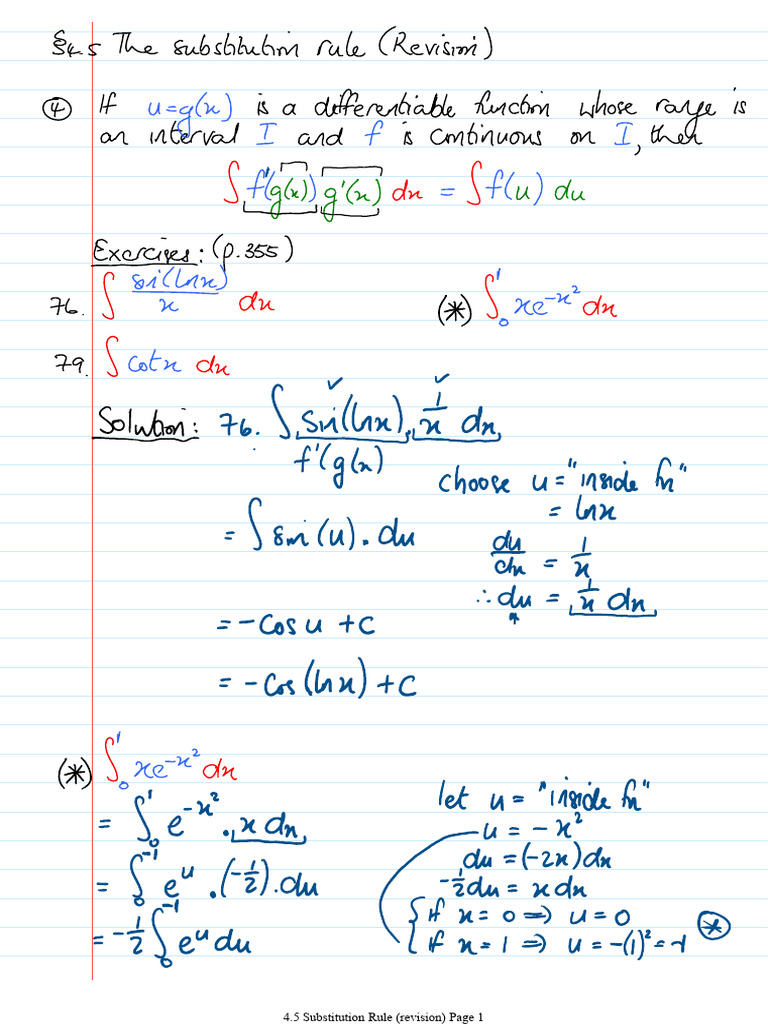 §4.5 The substitution rule (Revision)
④ If u=g(x) is a differentiable function whose range is
an interval I and f is continuous on I, then
∫ f'(g(x)) g'(x) dx = ∫ f(u) du
Exercises: (p.355)
76. ∫ sin(lnx)/x dx (*) ∫₀¹ xe^(-x²) dx
79. ∫ cotx dx
Solution: 76. ∫ sin(lnx) · 1/x dx
✓ ✓
f'(g(x)
choose u = "inside fn"
= lnx
= ∫ sin(u) · du
du/dx = 1/x
∴ du = 1/x dx
= -cos u + c
= -cos(lnx) + c
(*) ∫₀¹ xe^(-x²) dx
= ∫₀¹ e^(-x²) · x dx
= ∫₀⁻¹ e^u · (-1/2) · du
= -1/2 ∫₀⁻¹ e^u du
let u = "inside fn"
u = -x²
du = (-2x) dx
-1/2 du = x dx
{ if x = 0 ⇒ u = 0
if x = 1 ⇒ u = -(1)² = -1 (*)
4.5 Substitution Rule (revision) Page 1